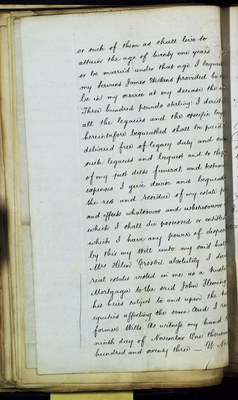 or such of them as shall live to
attain the age of twenty one years
or be married under that age I bequeath
my servant James Withers provided he
be in my service at my decease the
Three hundred pounds sterling I direct
all the legacies and the specific
hereinbefore bequeathed shall be paid
delivered free of legacy duty and
such legacies and bequest and to the
of my just debts funeral and
expenses I give devise and bequeath
the rest and residue of my estate
and effects whatsoever and wheresoever
which I shall die possessed or entitled
which I have any power of
by this my Will unto my said
Mrs Helen Crosbie absolutely I
real estate vested in me as a
Mortgagee to the said John Fleming
his heirs subject to and upon the
equities affecting the same And I
former Wills As witness my hand
ninth day of November One thousand
hundred and seventy three